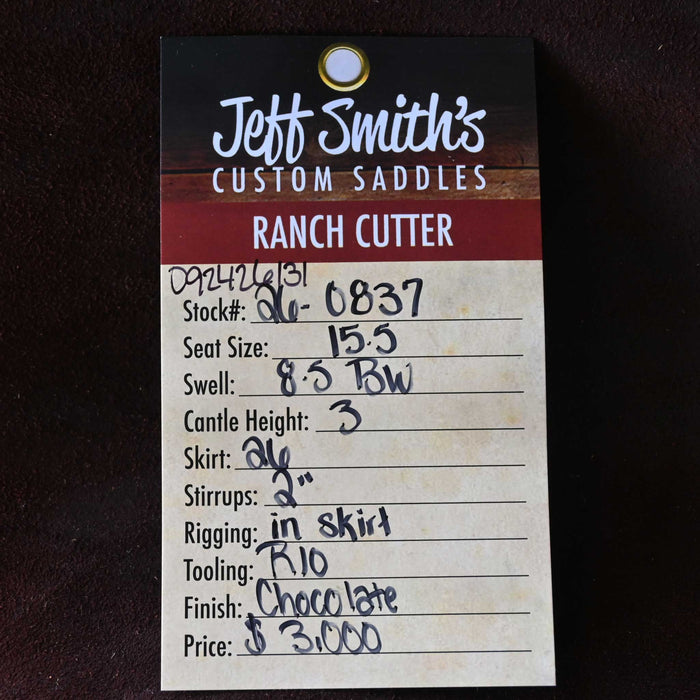 Jeff Smith's
CUSTOM SADDLES
RANCH CUTTER
092426131
Stock#: 26-0837
Seat Size: 15.5
Swell: 8.5 BW
Cantle Height: 3
Skirt: 26
Stirrups: 2"
Rigging: in skirt
Tooling: R10
Finish: Chocolate
Price: $ 3,000